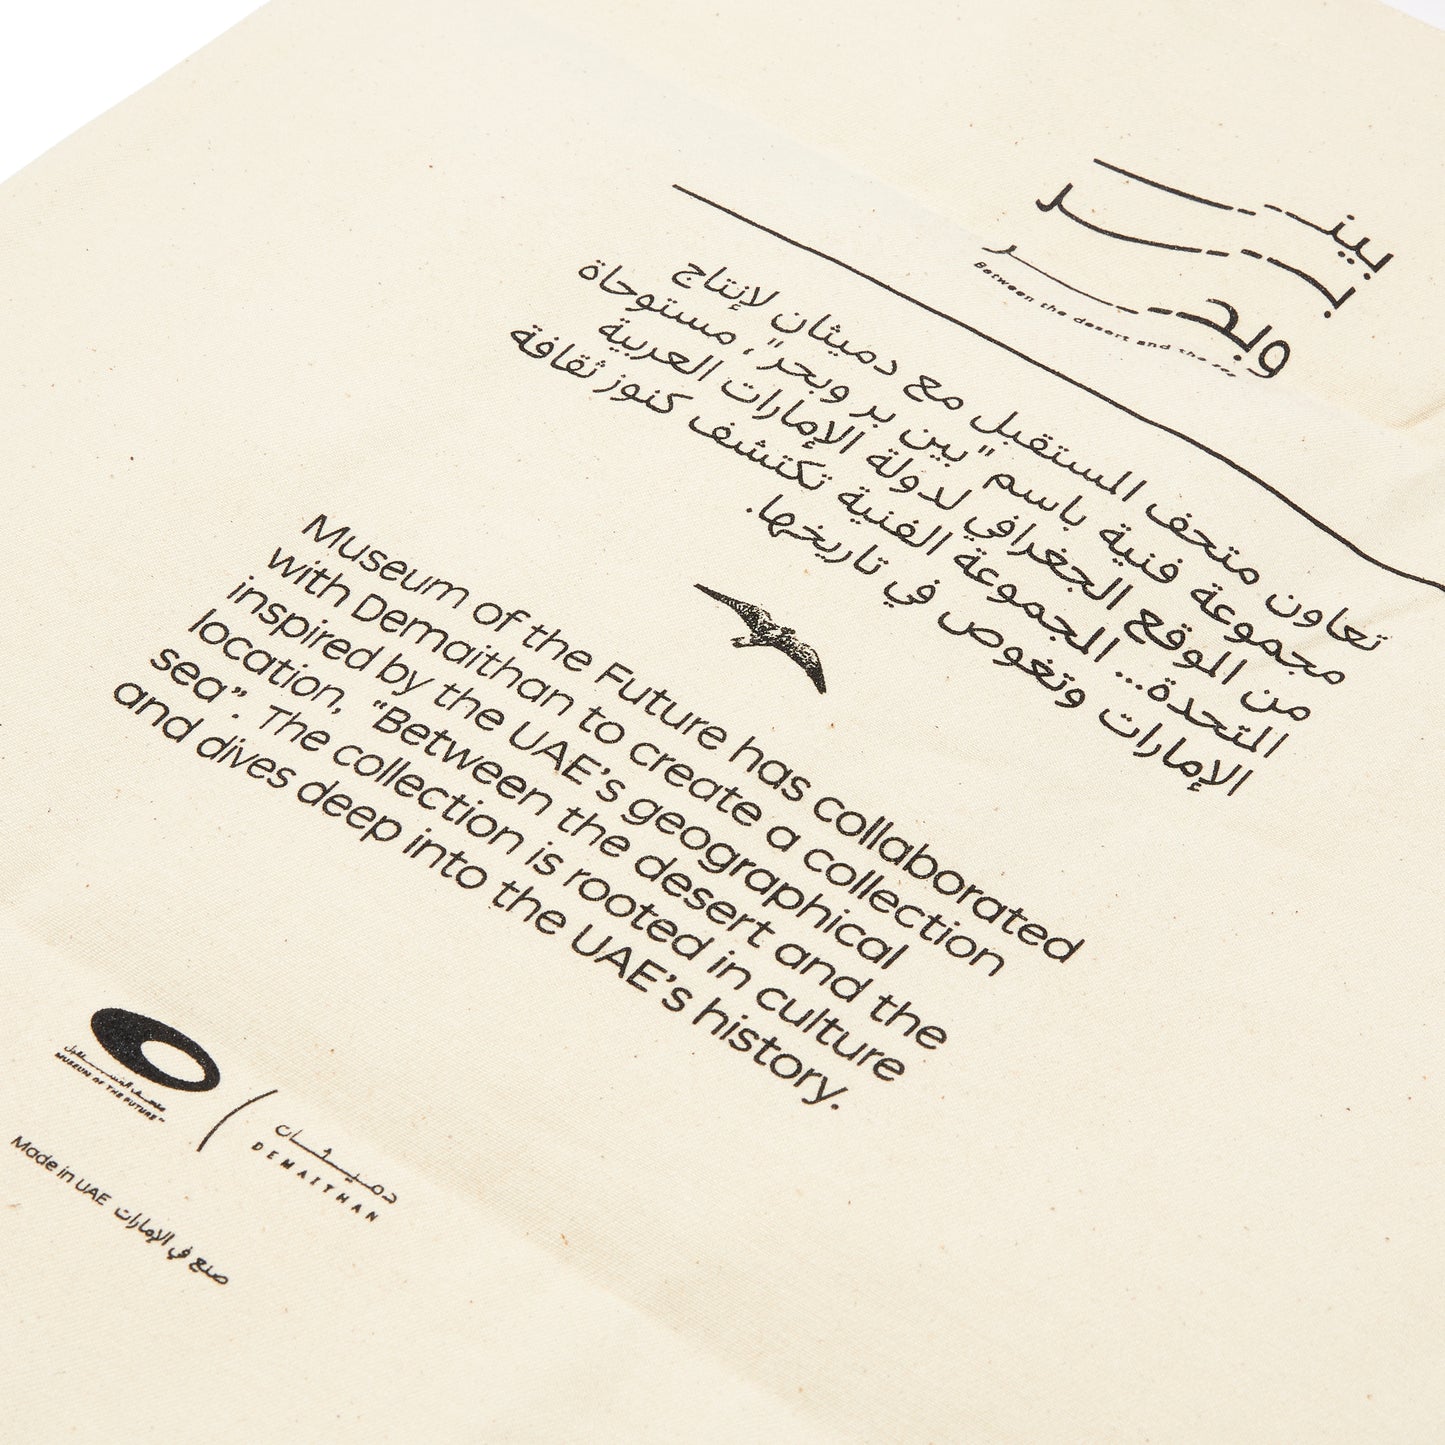 بين
بر
وبحر
Between the desert and the sea
تعاون متحف المستقبل مع دميثان لإنتاج
مجموعة فنية باسم "بين بر وبحر"، مستوحاة
من الموقع الجغرافي لدولة الإمارات العربية
المتحدة... المجموعة الفنية تكتشف كنوز ثقافة
الإمارات وتغوص في تاريخها.
Museum of the Future has collaborated
with Demaithan to create a collection
inspired by the UAE's geographical
location, “Between the desert and the
sea”. The collection is rooted in culture
and dives deep into the UAE's history.
متحف المستقبل
MUSEUM OF THE FUTURE™
دميثان
DEMAITHAN
Made in UAE صنع في الإمارات